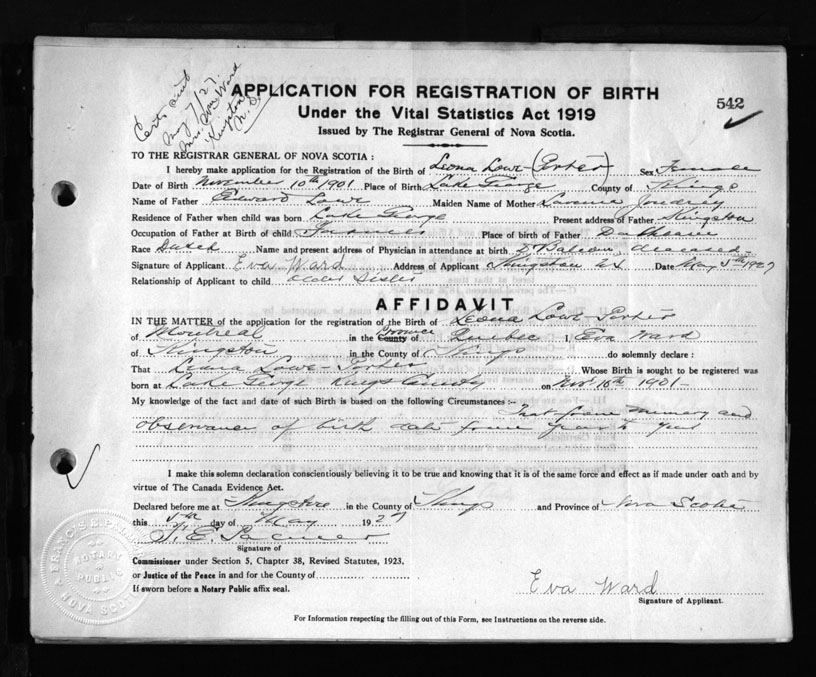 Certs sent
May 7/27.
Mrs. Wm Ward
Kingston
N.S.
APPLICATION FOR REGISTRATION OF BIRTH
542
Under the Vital Statistics Act 1919
Issued by The Registrar General of Nova Scotia.
TO THE REGISTRAR GENERAL OF NOVA SCOTIA :
I hereby make application for the Registration of the Birth of Leona Lowe-(Porter) Sex Female
Date of Birth November 10th 1901 Place of Birth Lake George County of Kings
Name of Father Edward Lowe Maiden Name of Mother Lavenia
Residence of Father when child was born Lake George Present address of Father Kingston
Occupation of Father at Birth of child Farmer Place of birth of Father
Race Dutch Name and present address of Physician in attendance at birth deceased
Signature of Applicant Eva Ward Address of Applicant Kingston Date May 5th 1927
Relationship of Applicant to child older sister
AFFIDAVIT
IN THE MATTER of the application for the registration of the Birth of Leona Lowe-Porter
of Montreal in the County Province of Quebec I, Eva Ward
of Kingston in the County of Kings do solemnly declare :
That Leona Lowe-Porter Whose Birth is sought to be registered was
born at Lake George Kings County on Nov 10th 1901
My knowledge of the fact and date of such Birth is based on the following Circumstances :-
That from memory and
observance of birth date from year to year
I make this solemn declaration conscientiously believing it to be true and knowing that it is of the same force and effect as if made under oath and by
virtue of The Canada Evidence Act.
Declared before me at Kingston in the County of Kings and Province of Nova Scotia
this 5th day of May 1927
Signature of
Commissioner under Section 5, Chapter 38, Revised Statutes, 1923.
or Justice of the Peace in and for the County of
If sworn before a Notary Public affix seal.
NOTARY
PUBLIC
NOVA SCOTIA
Eva Ward
Signature of Applicant.
For Information respecting the filling out of this Form, see Instructions on the reverse side.